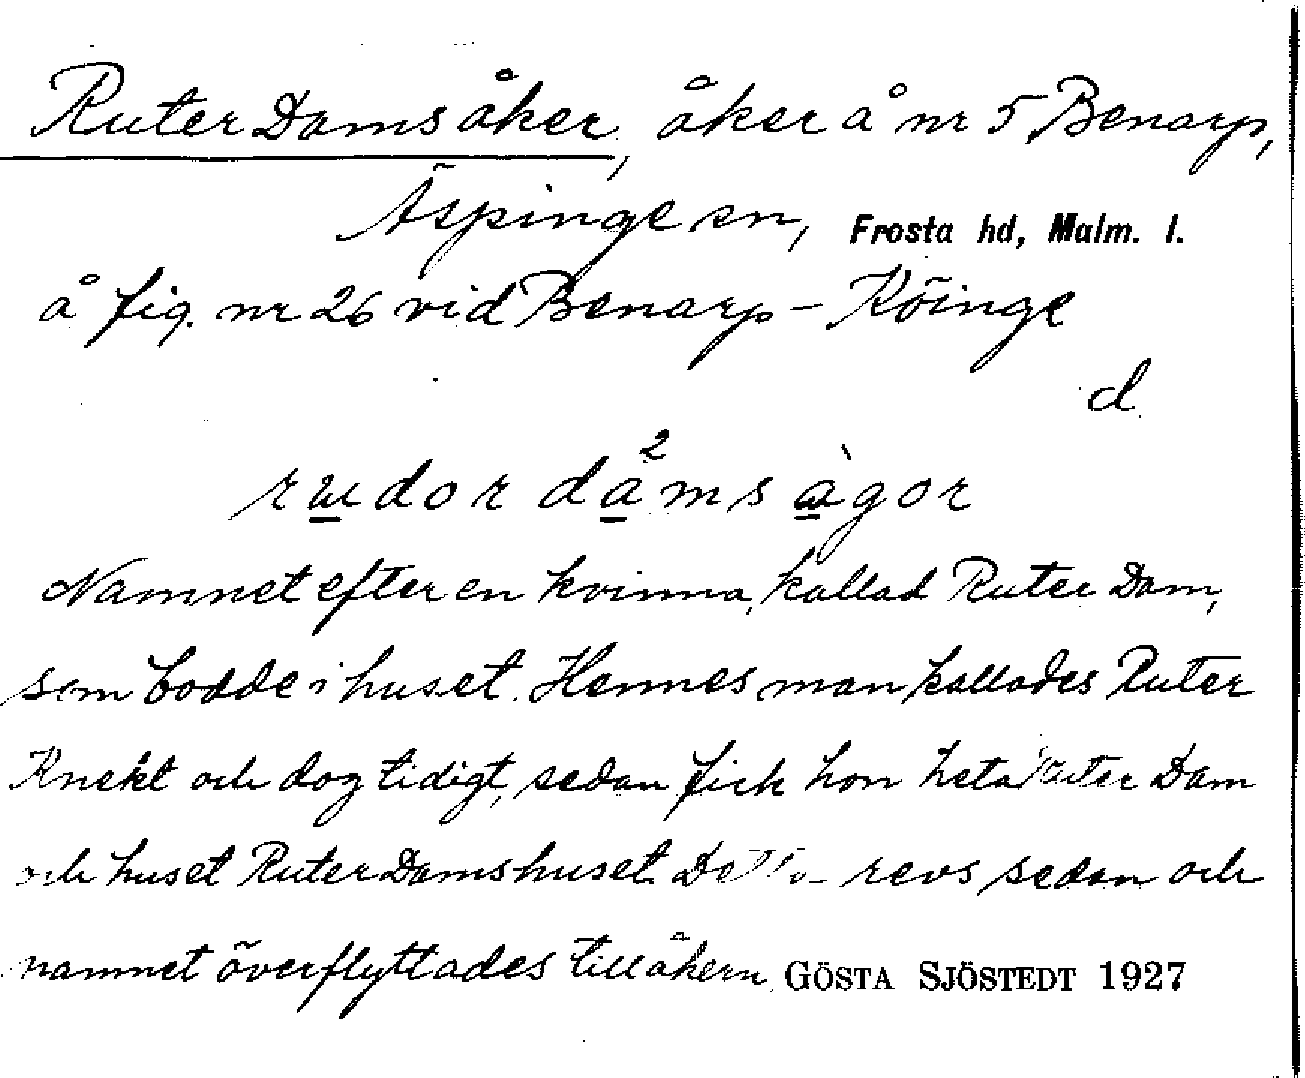 Ruter Damsåker, åker å nr 5 Benarp,
Äspinge sn, Frosta hd, Malm. l.
å fig. nr 26 vid Benarp - Köinge
d.
rudor då²msàgor
Namnet efter en kvinna, kallad Ruter Dam,
som bodde i huset. Hennes man kallades Ruter
Knekt och dog tidigt, sedan fick hon heta Ruter Dam
och huset Ruter Damshuset. Detta revs sedan och
namnet överflyttades till åkern. GÖSTA SJÖSTEDT 1927